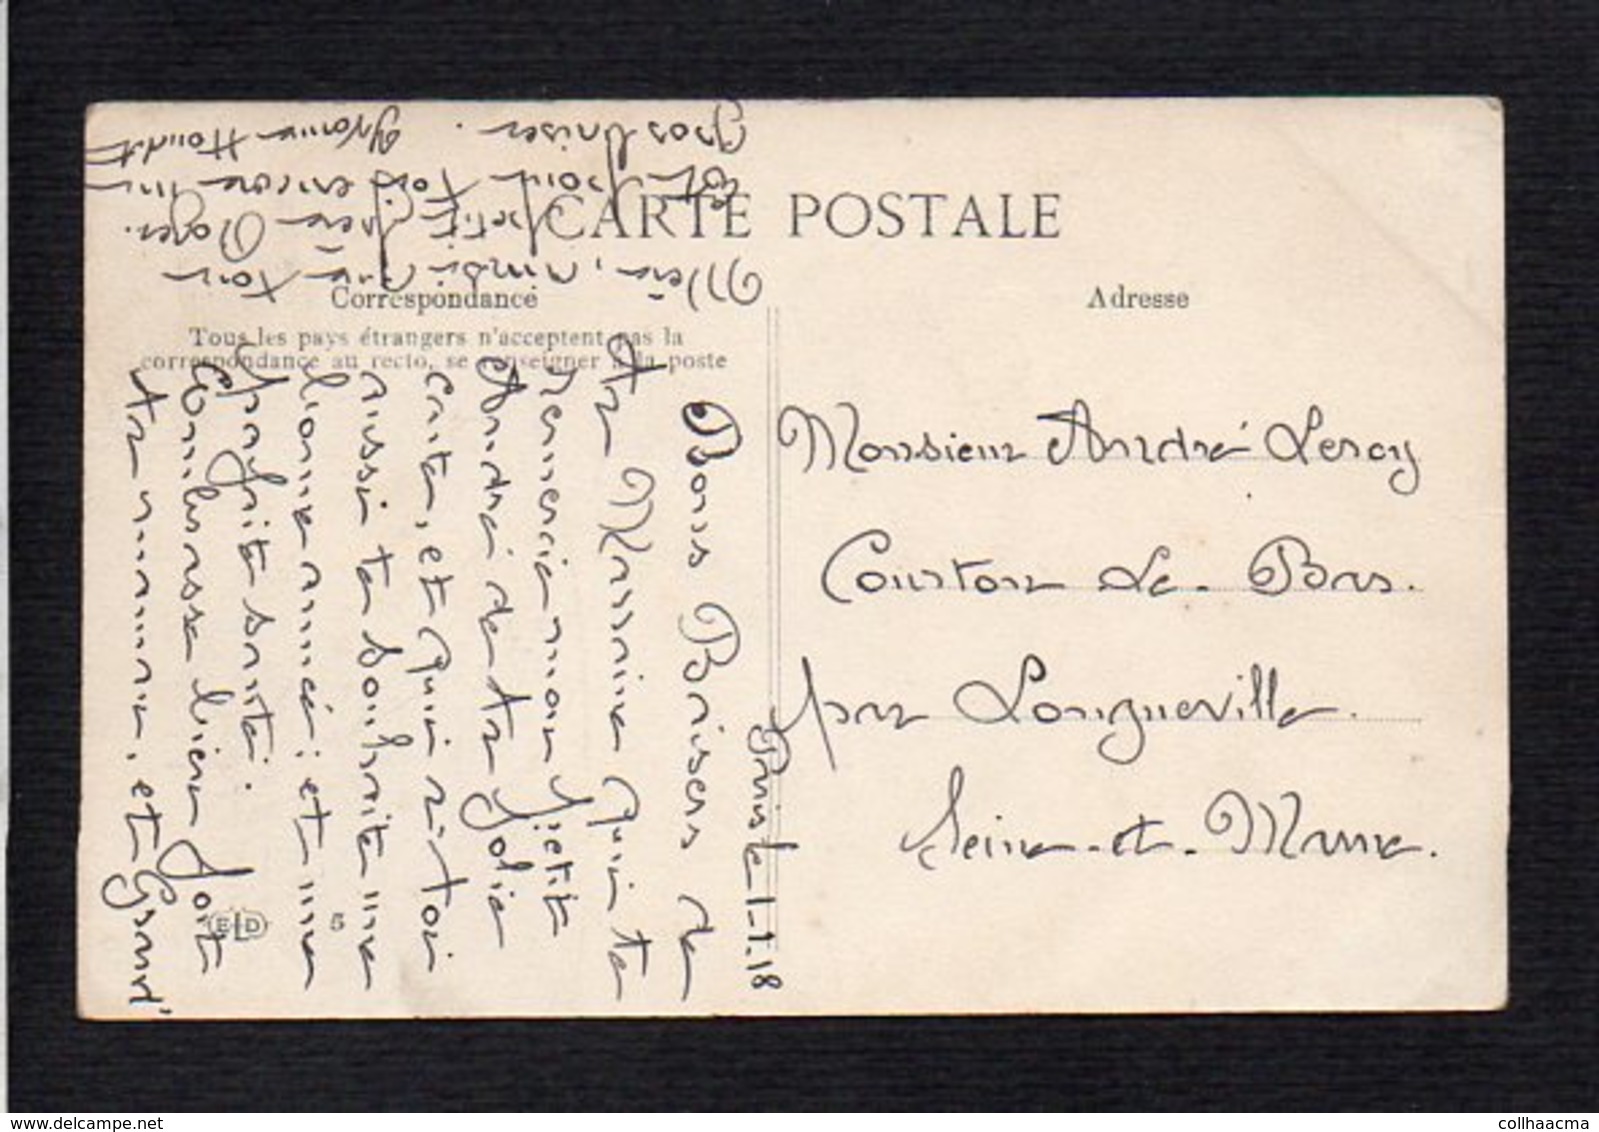 CARTE POSTALE
Correspondance
Tous les pays étrangers n'acceptent pas la
correspondance au recto, se renseigner à la poste
Adresse
Monsieur André Leroy
Courton Le Bas.
par Longueville.
Seine-et-Marne.
Paris le 1-1-18
Bons Baisers de
Ta Marraine qui te
remercie mon petit
André de ta jolie
carte, et qui à toi
aussi te souhaite une
bonne année; et une
parfaite santé.
Embrasse bien fort
ta maman, et Grand'
Mère, ainsi que ton
petit frère Roger.
Et pour toi encore un
gros baiser.
ELD
5
collhaacma